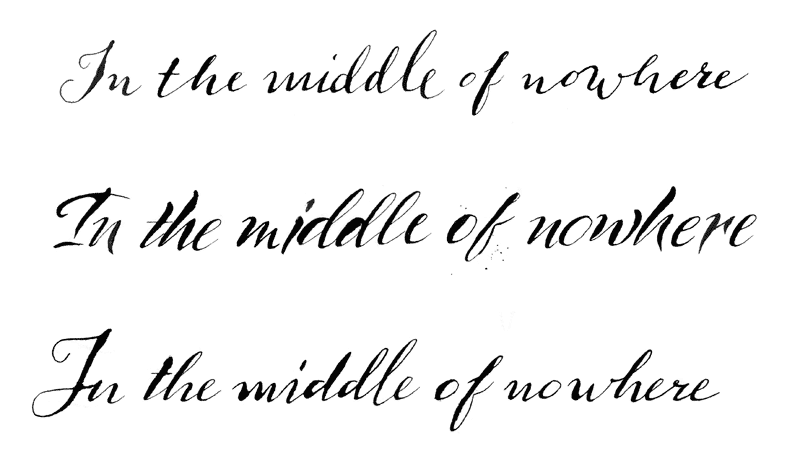 In the middle of nowhere
In the middle of nowhere
In the middle of nowhere